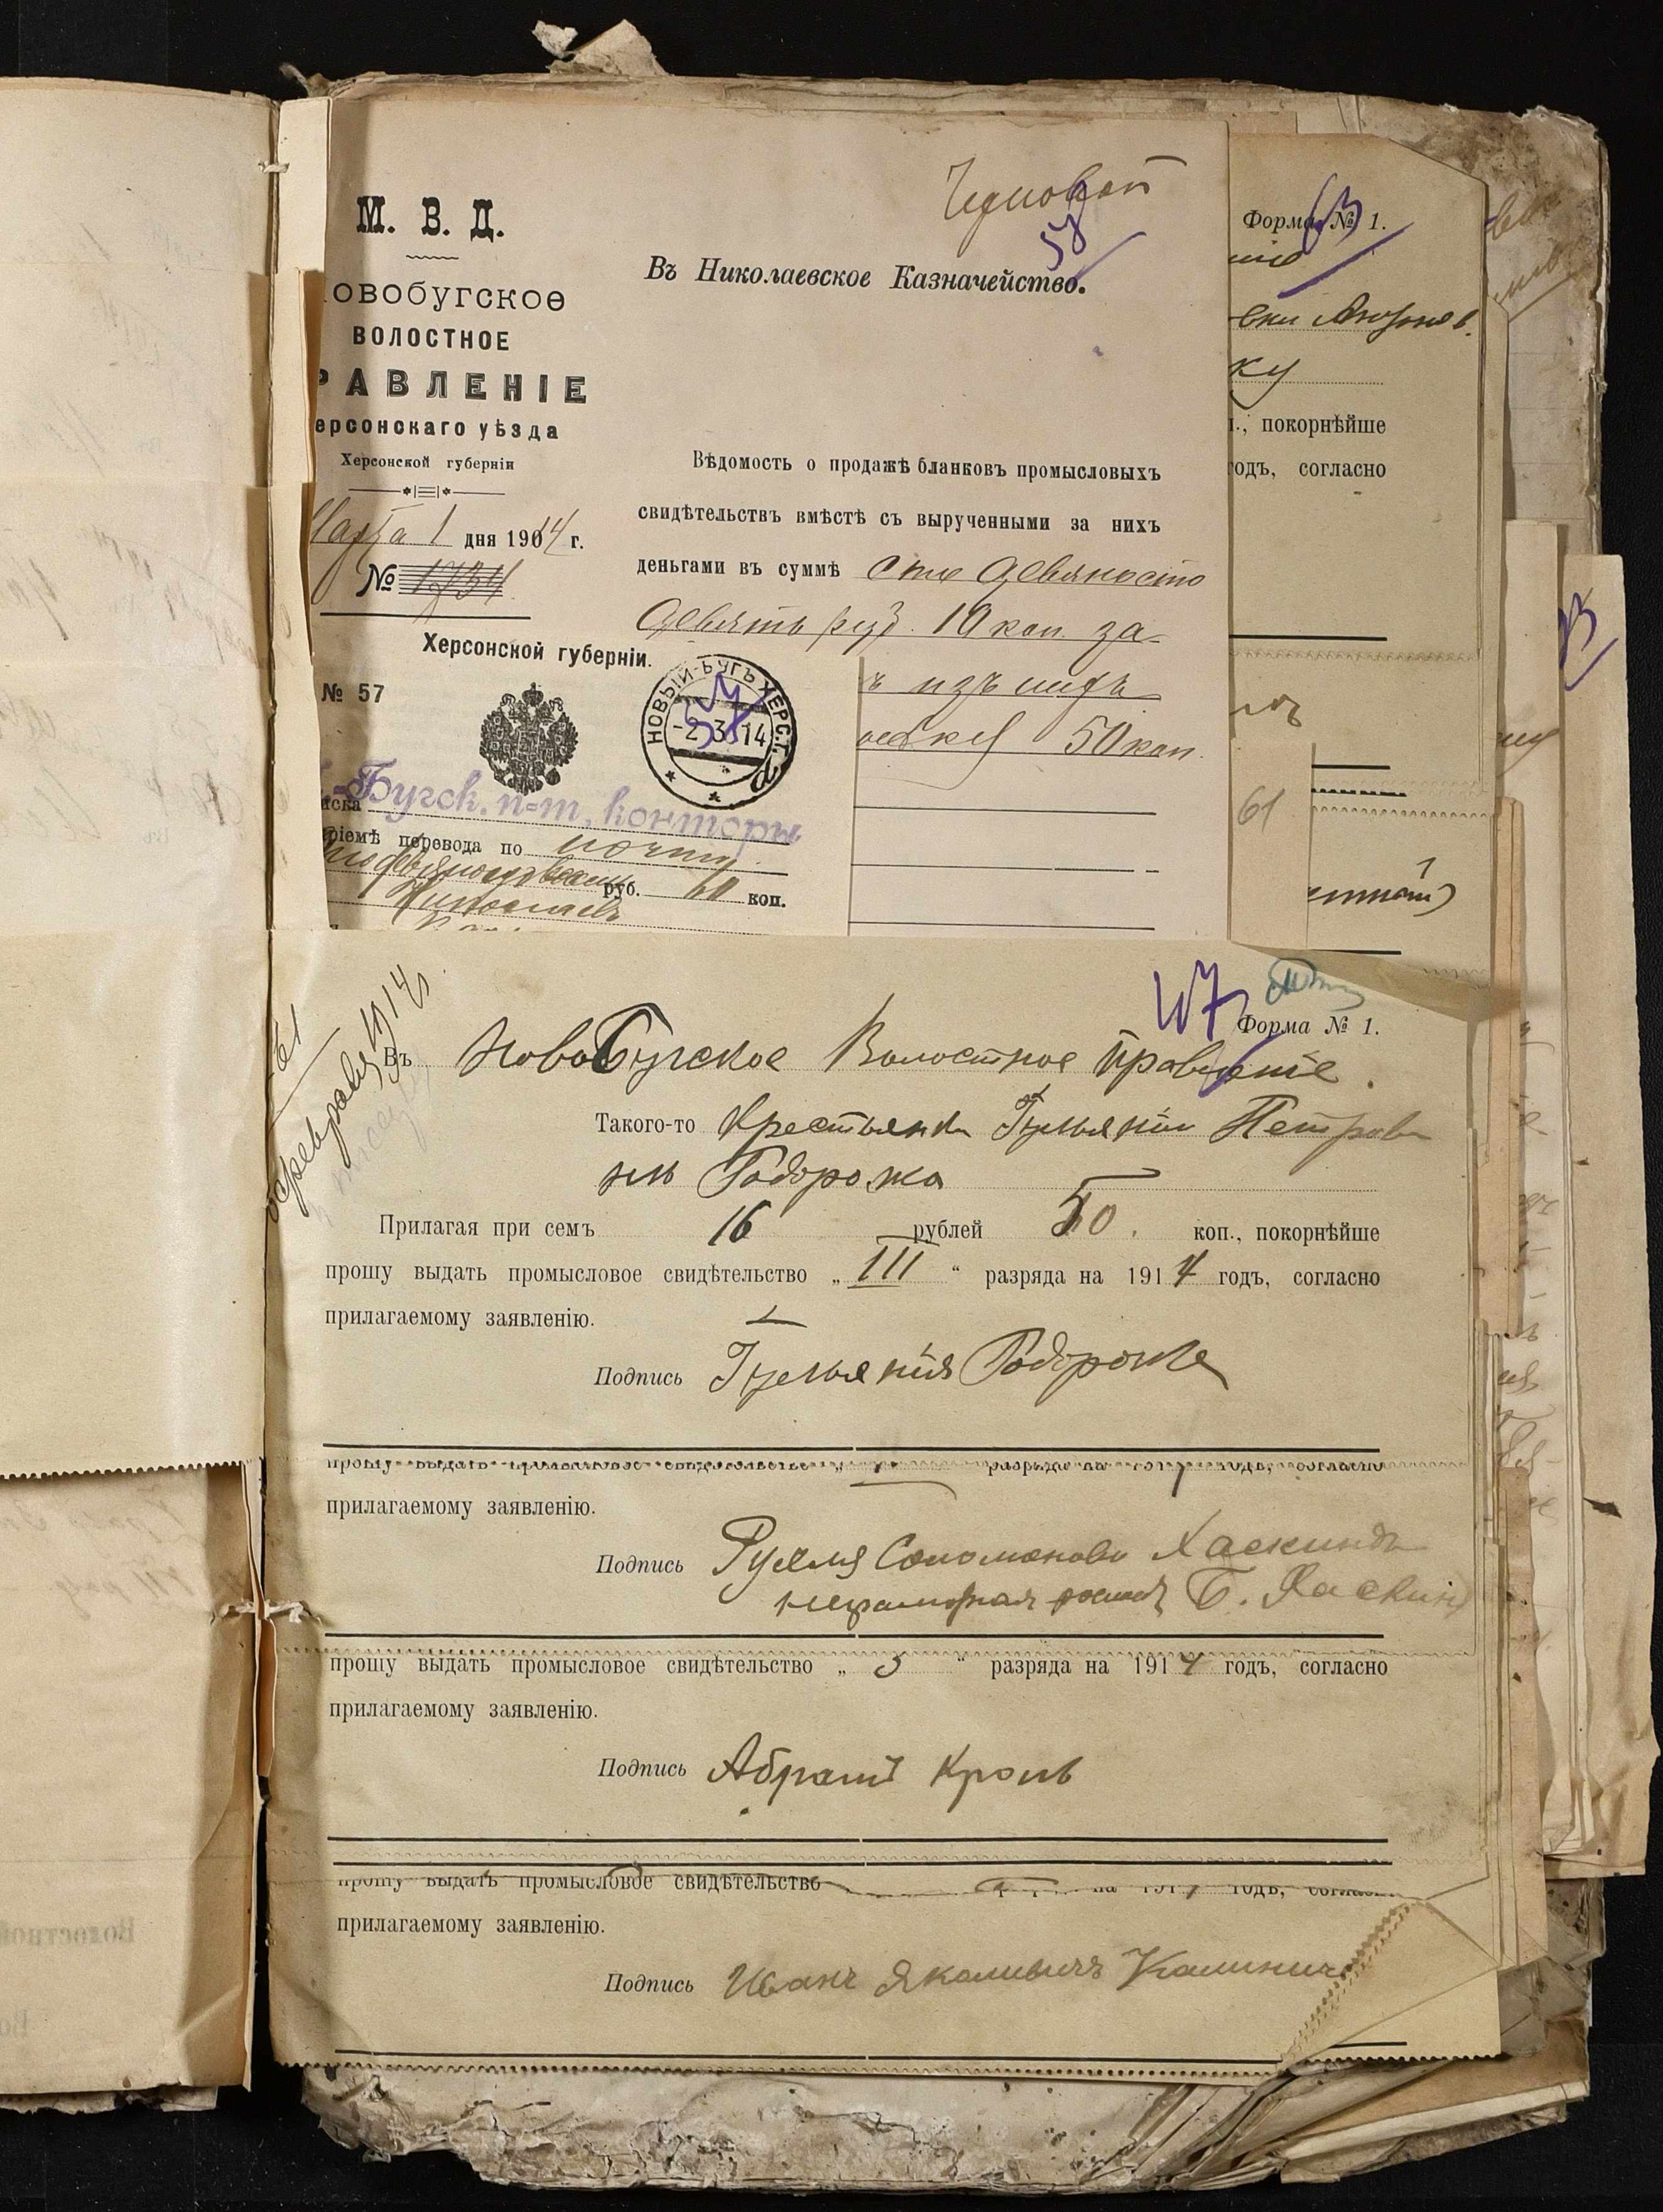 М. В. Д.
овобугское
ВОЛОСТНОЕ
РАВЛЕНІЕ
ерсонскаго уѣзда
Херсонской губерніи
Марта 1 дня 1914 г.
№ 1734
58
Въ Николаевское Казначейство.
Вѣдомость о продажѣ бланковъ промысловыхъ
свидѣтельствъ вмѣстѣ съ вырученными за нихъ
деньгами въ суммѣ сто девяносто
девять руб. 10 коп. за
ъ изъ нихъ
50 коп.
Херсонской губерніи.
№ 57
НОВЫЙ-БУГЪ ХЕРС.Г.
-2 3 14
-Бугск. п-т. конторы
иска
ріемѣ перевода по почтѣ
руб. 60 коп.
Николаевъ
63
Форма № 1.
ніе
ку
п., покорнѣйше
годъ, согласно
61
73
61
февраля 1914
47
Форма № 1.
Въ Новобугское Волостное Правленіе.
Такого-то Крестьянки Гульяніи Петров
ны Подорожа
Прилагая при семъ 16 рублей 50. коп., покорнѣйше
прошу выдать промысловое свидѣтельство „ III “ разряда на 1914 годъ, согласно
прилагаемому заявленію.
Подпись Гульянія Подорожа
прошу выдать промысловое свидѣтельство разряда на 1914 годъ, согласно
прилагаемому заявленію.
Подпись Рухля Соломонова Хаскинд
неграмотная Б. Хаскинд
прошу выдать промысловое свидѣтельство „ 3 “ разряда на 1914 годъ, согласно
прилагаемому заявленію.
Подпись Абрамъ Кроль
прошу выдать промысловое свидѣтельство на 1914 годъ, соглас
прилагаемому заявленію.
Подпись Иванъ Якимовичъ Калинич